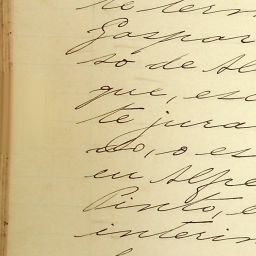 re ter
Gaspar
so de Al
que, es
te jura
do, o es
eu Alfe
Pinto, e
interin